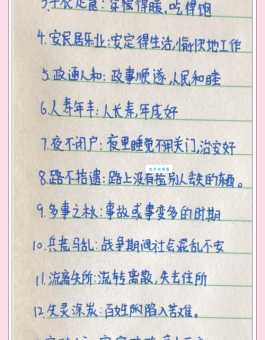 3.丰衣足食:穿得暖,吃得饱
4.安民居乐业:安定得生活,愉快地工作
5.政通人和:政事顺遂,人民和睦
6.人寿年丰:人长寿,年成好
7.夜不闭户:夜里睡觉不用关门,治安好
8.路不拾遗:路上没有捡别人丢失的东西。
9.多事之秋:事故或事变多的时期
10.兵荒马乱:战争期间社会混乱不安
11.流离失所:流转离散,失去住所
12.生灵涂炭:百姓陷入苦难。